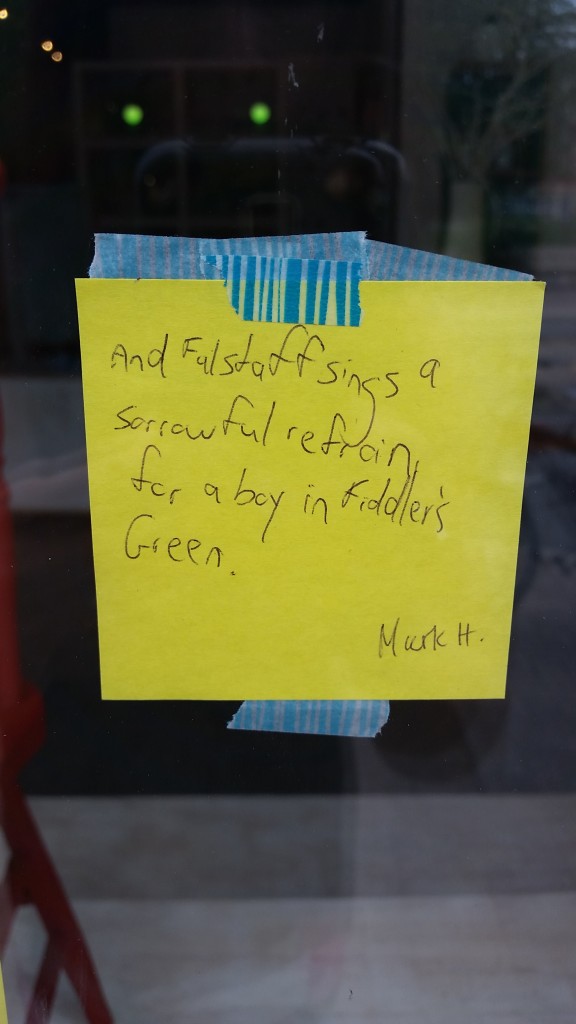 And Falstaff sings a
sorrowful refrain,
for a boy in Fiddler's
Green.
Mark H.